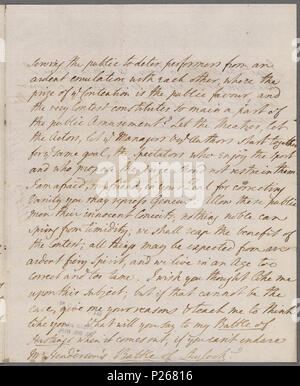 serving the public to deter performers from an
ardent emulation with each other, where the
prize of y.e Contention is the public favour, and
the very Contest constitutes so main a part of
the public Amusement? Let the Theatres, let
the Actors, let y.e Managers & y.e Authors start together
for y.e same goal; the spectators who enjoy the sport
and who propose the prize shou'd not restrain them
I am afraid, my friend, in your zeal for correcting
Vanity you may repress Genius. Allow these people
their innocent Conceits; nothing noble can
spring from timidity; we shall reap the benefit of
the Contest; all things may be expected from an
ardent fiery Spirit, and we live in an Age too
correct and too tame. I wish you thought like me
upon this subject; but if that cannot be the
case, give me your reasons & teach me to think
like you. What will you say to my Battle of
Hastings when it comes out, if you can't endure
Mr. Henderson's Battle of Shylock?
alamy
P26816